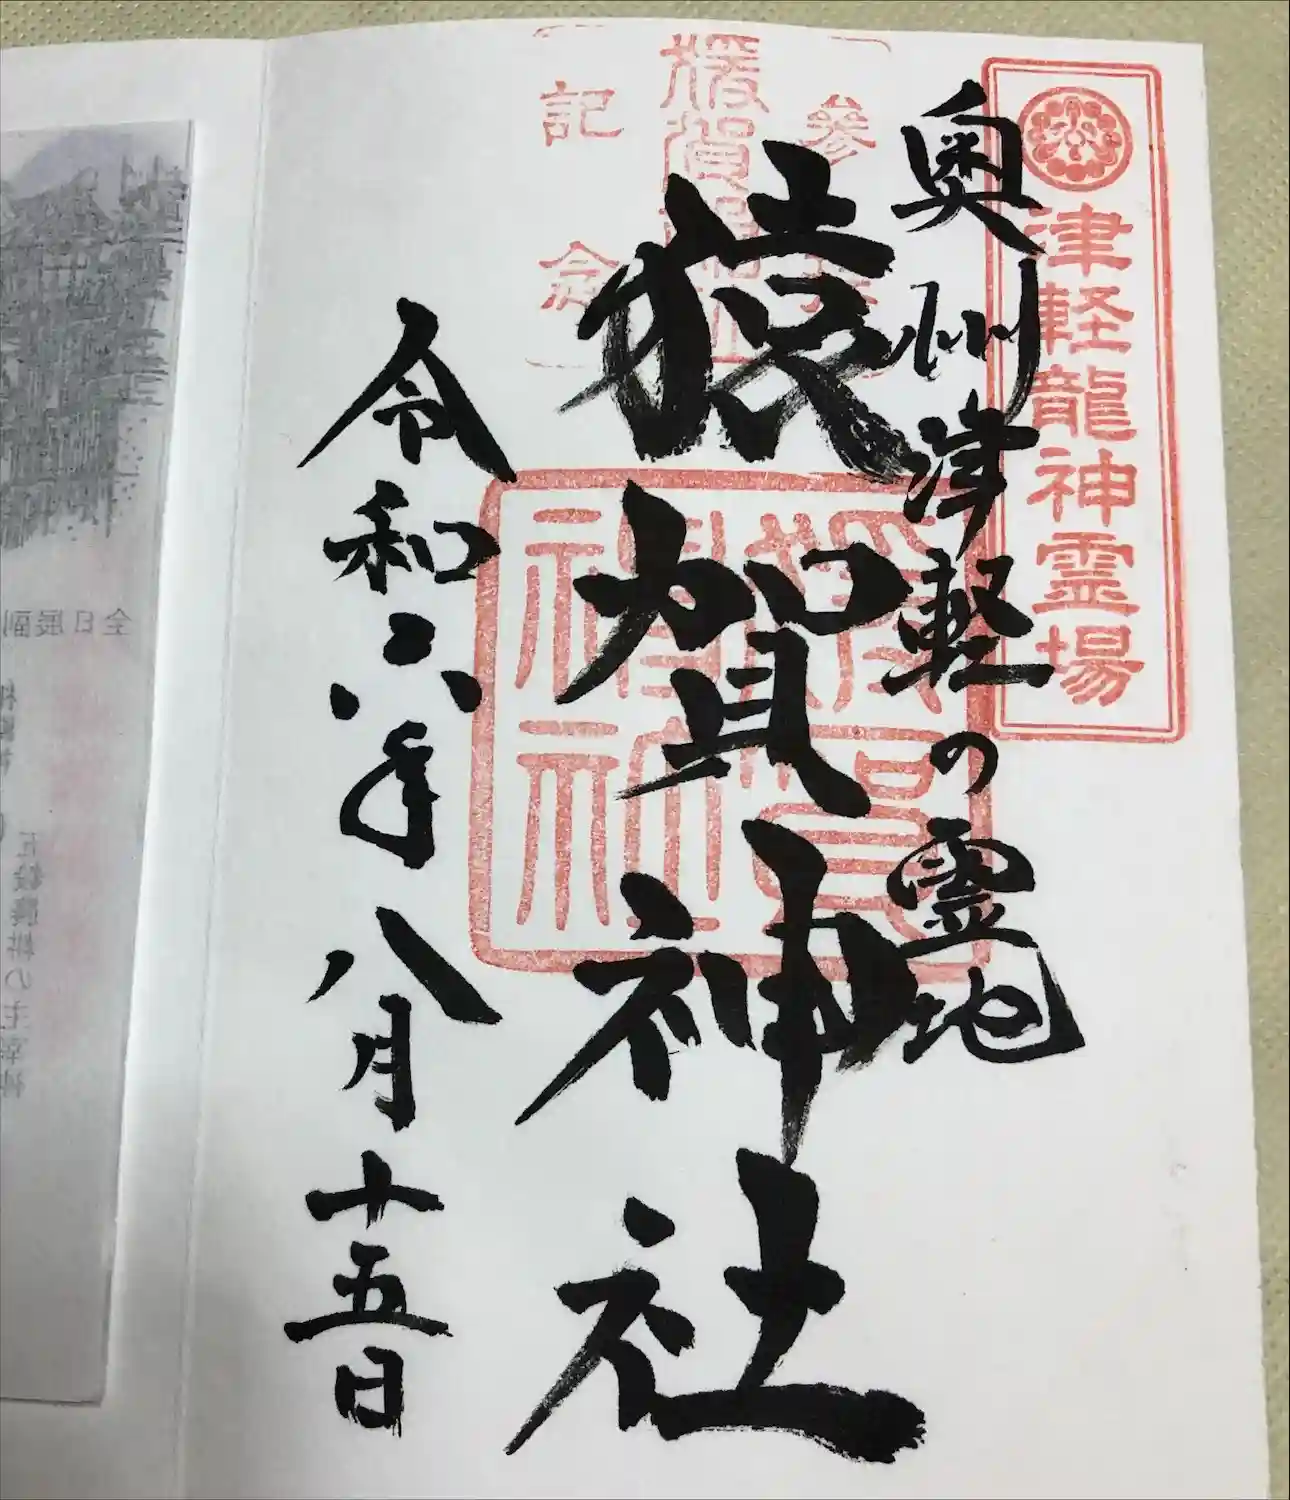 津軽龍神霊場
奥州津軽の霊地
参拝
猿賀神社
記念
猿賀神社
猿賀神社
令和六年八月十五日